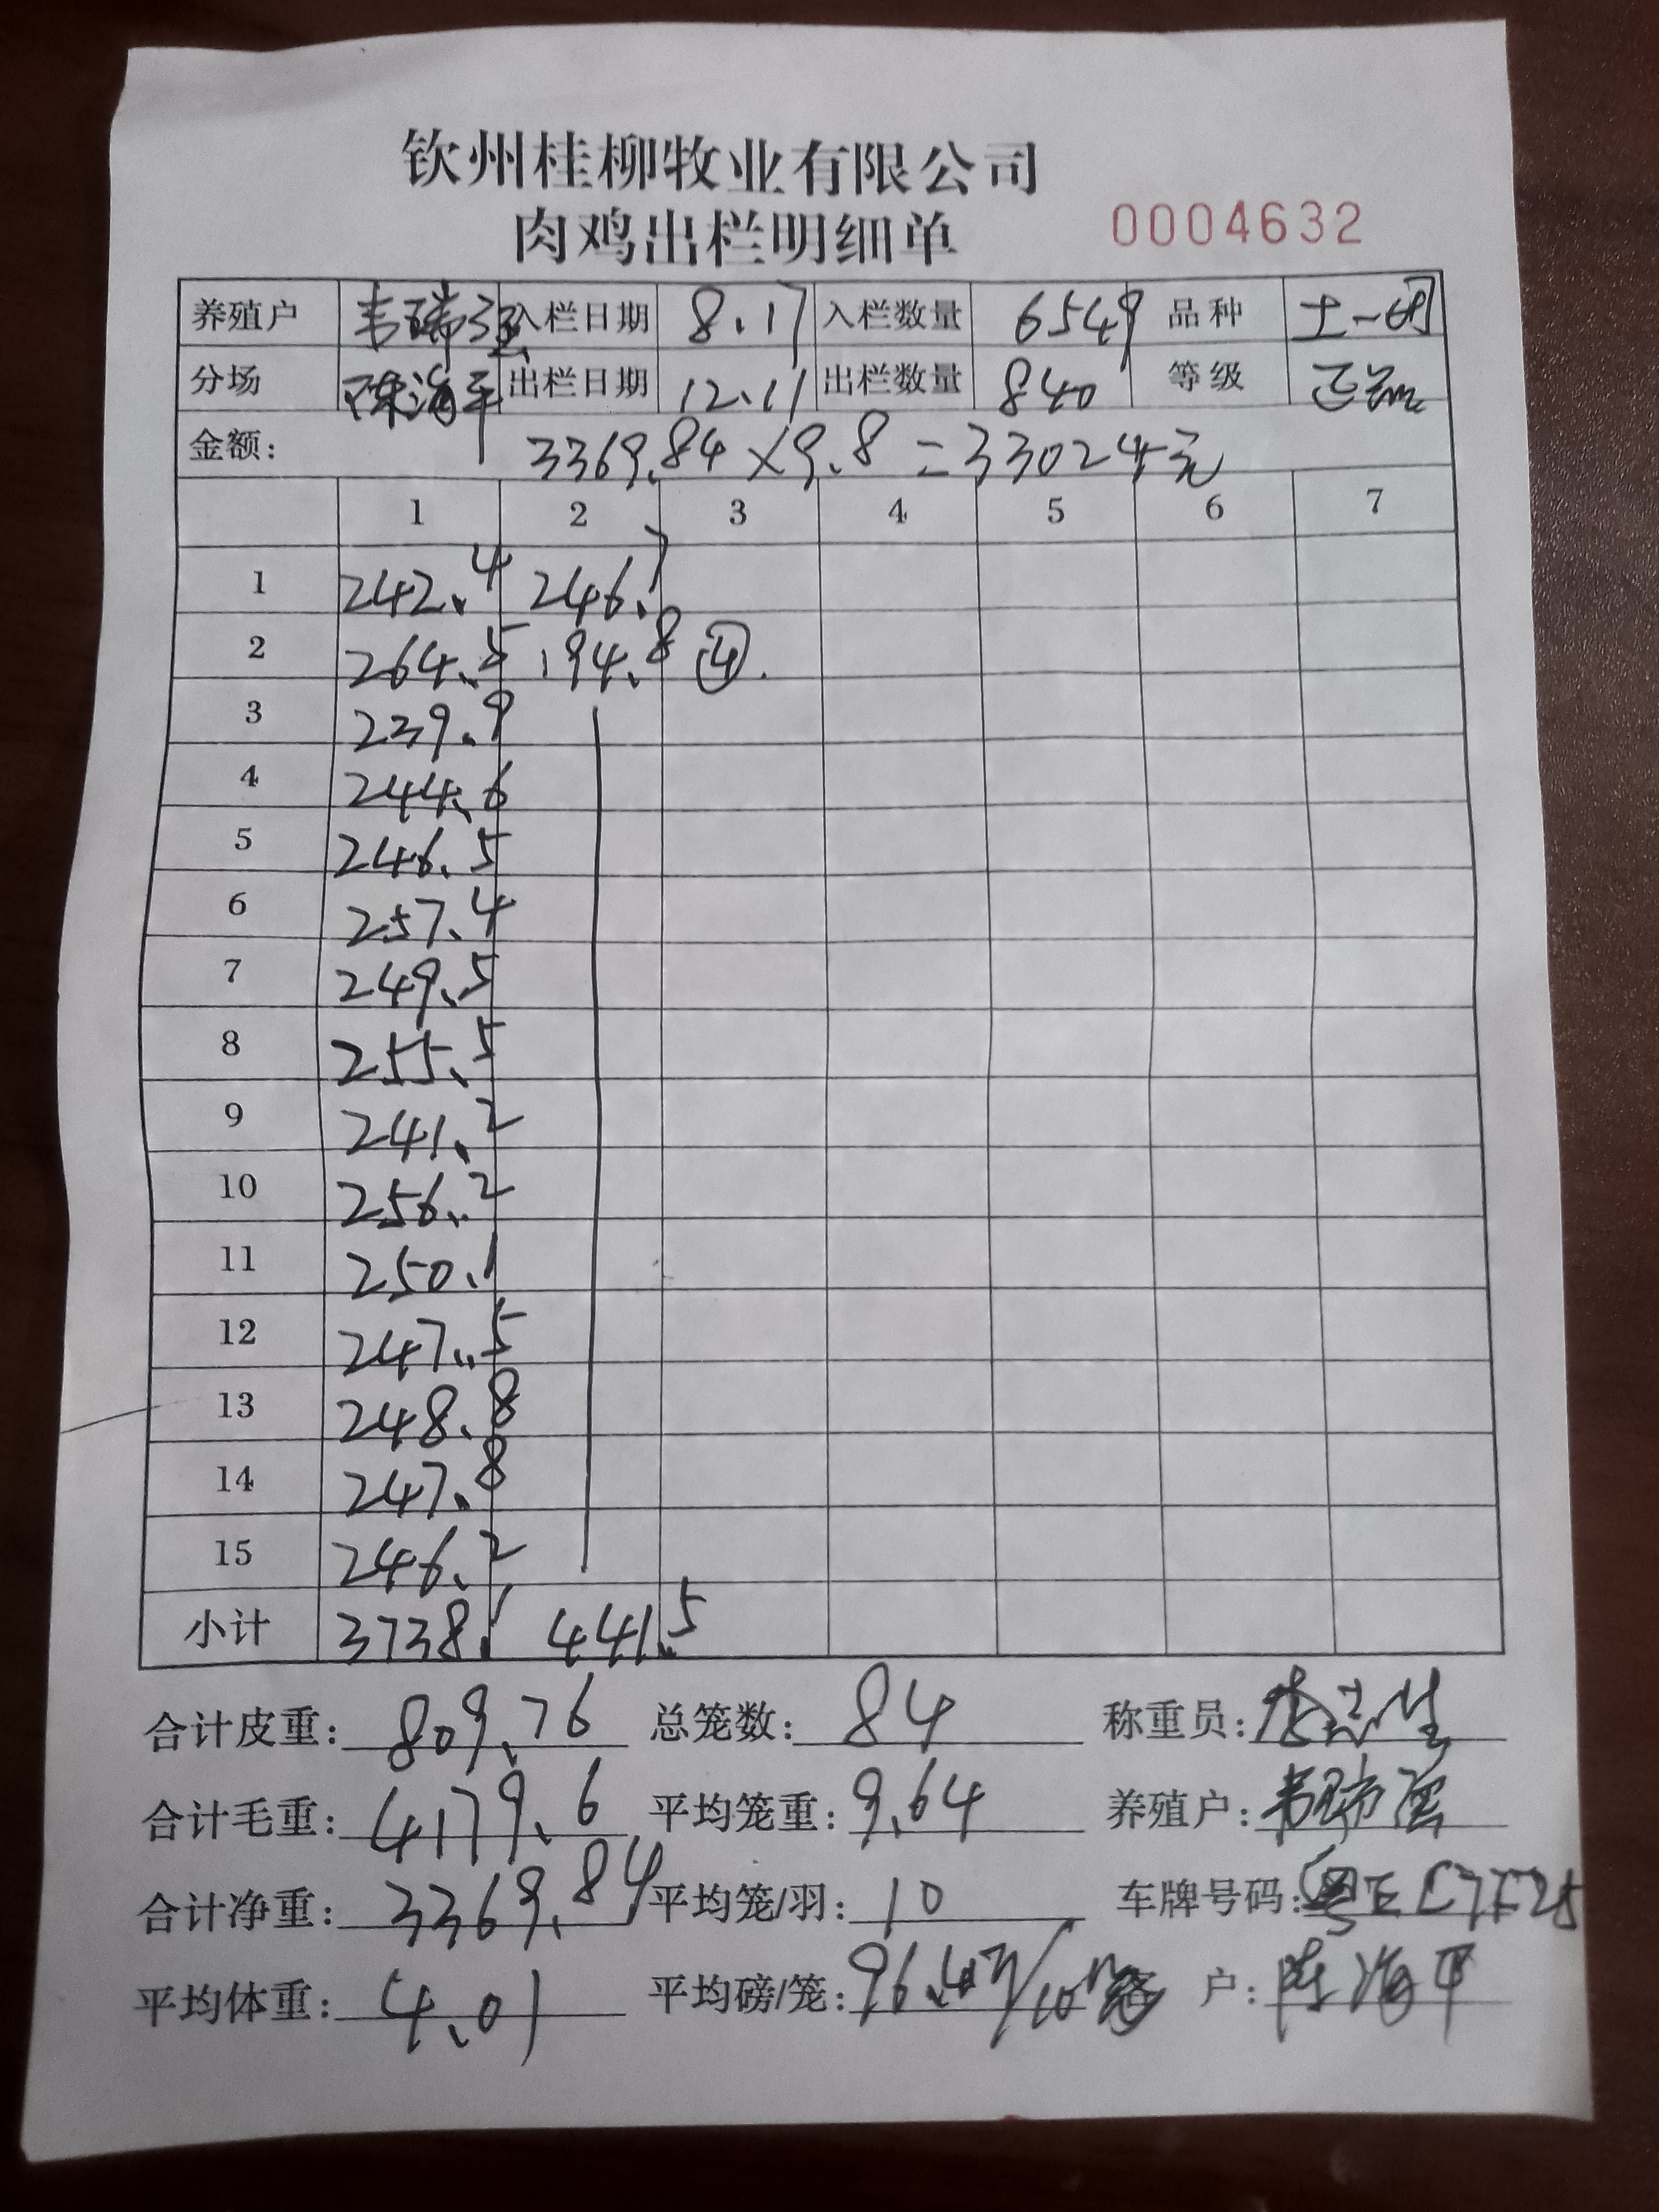 钦州桂柳牧业有限公司
肉鸡出栏明细单 0004632
养殖户 韦瑞强 入栏日期 8.17 入栏数量 6549 品种 土一
分场 陈海平 出栏日期 12.11 出栏数量 840 等级 正品
金额: 3369.84×9.8=33024元
1 2 3 4 5 6 7
1 242.4 246.7
2 264.5 194.8 ④.
3 239.9
4 244.6
5 246.5
6 257.4
7 249.5
8 255.5
9 241.2
10 256.2
11 250.1
12 247.5
13 248.8
14 247.8
15 246.2
小计 3738.1 441.5
合计皮重: 809.76 总笼数: 84 称重员:
合计毛重: 4179.6 平均笼重: 9.64 养殖户: 韦瑞强
合计净重: 3369.84 平均笼/羽: 10 车牌号码:
平均体重: 4.01 平均磅/笼: 96.4 户: 陈海平